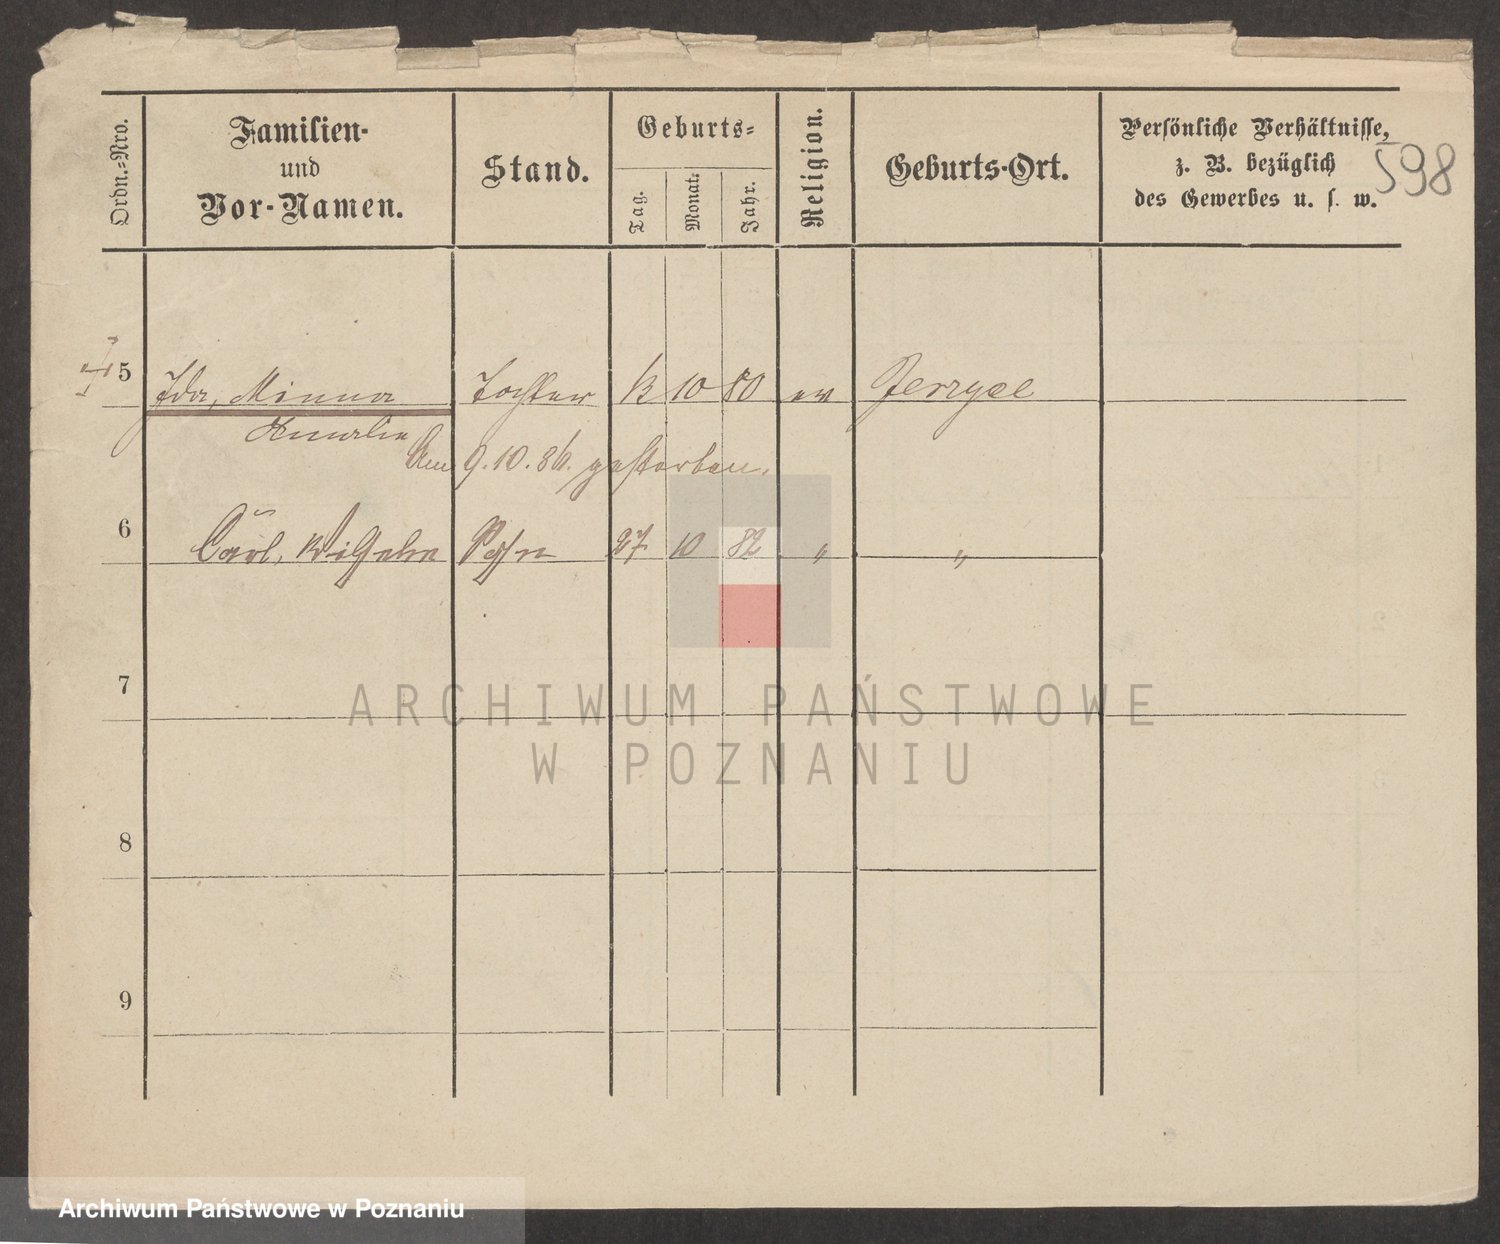 Ordn.=Nro.
Familien-
und
Vor-Namen.
Stand.
Geburts=
Tag.
Monat.
Jahr.
Religion.
Geburts-Ort.
Persönliche Verhältnisse,
z. B. bezüglich
des Gewerbes u. s. w.
598
5 Ida, Minna Tochter 10 80 ev Jerzyce
Amalie
Am 9.10.86. gestorben.
6 Carl, Wilhelm Sohn 27 10 82 " "
7
ARCHIWUM PAŃSTWOWE
W POZNANIU
8
9
Archiwum Państwowe w Poznaniu